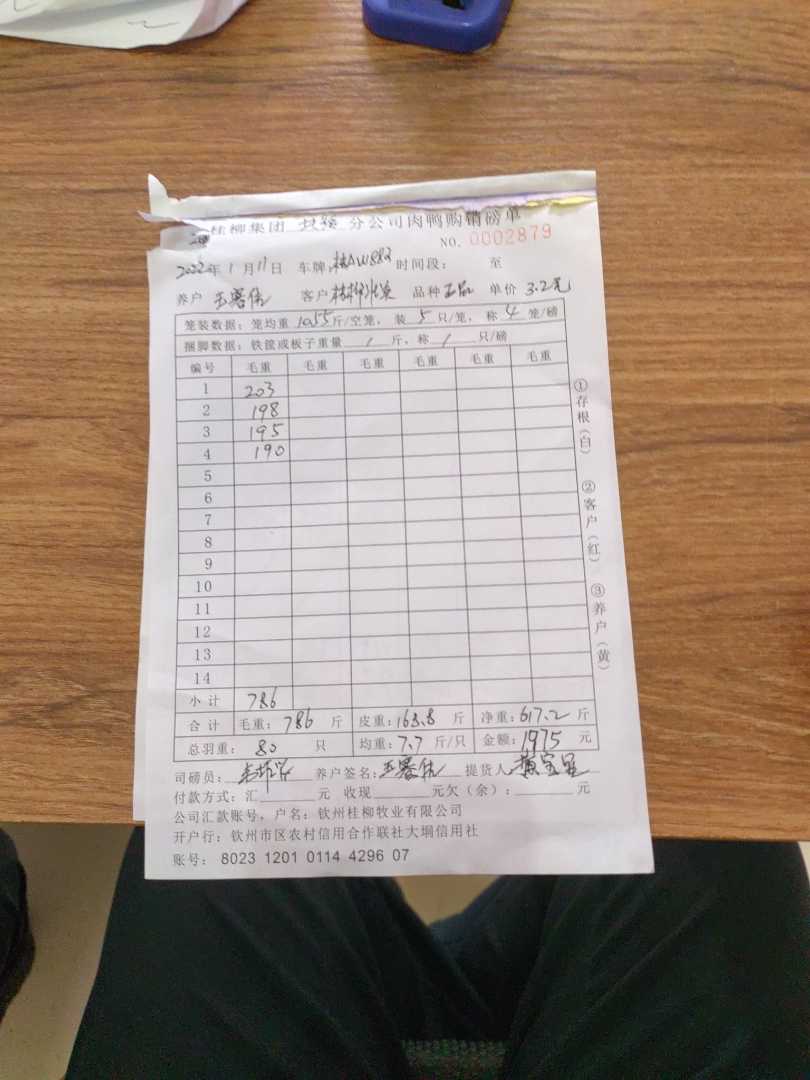 桂柳集团 扶绥 分公司肉鸭购销磅单
NO. 0002879
2022年1月11日 车牌: 桂AW883 时间段: 至
养户 客户 桂柳 品种 正品 单价 3.2元
笼装数据: 笼均重 10.55斤/空笼, 装 5 只/笼, 称 4 笼/磅
捆脚数据: 铁筐或板子重量 / 斤, 称 / 只/磅
编号 毛重 毛重 毛重 毛重 毛重 毛重
1 203
2 198
3 195
4 190
5
6
7
8
9
10
11
12
13
14
小计 786
合计 毛重: 786 斤 皮重: 168.8 斤 净重: 617.2 斤
总羽重: 80 只 均重: 7.7 斤/只 金额: 1975 元
司磅员: 养户签名: 提货人
付款方式: 汇 元 收现 元欠(余): 元
公司汇款账号, 户名: 钦州桂柳牧业有限公司
开户行: 钦州市区农村信用合作联社大垌信用社
账号: 8023 1201 0114 4296 07
①存根(白)
②客户(红)
③养户(黄)